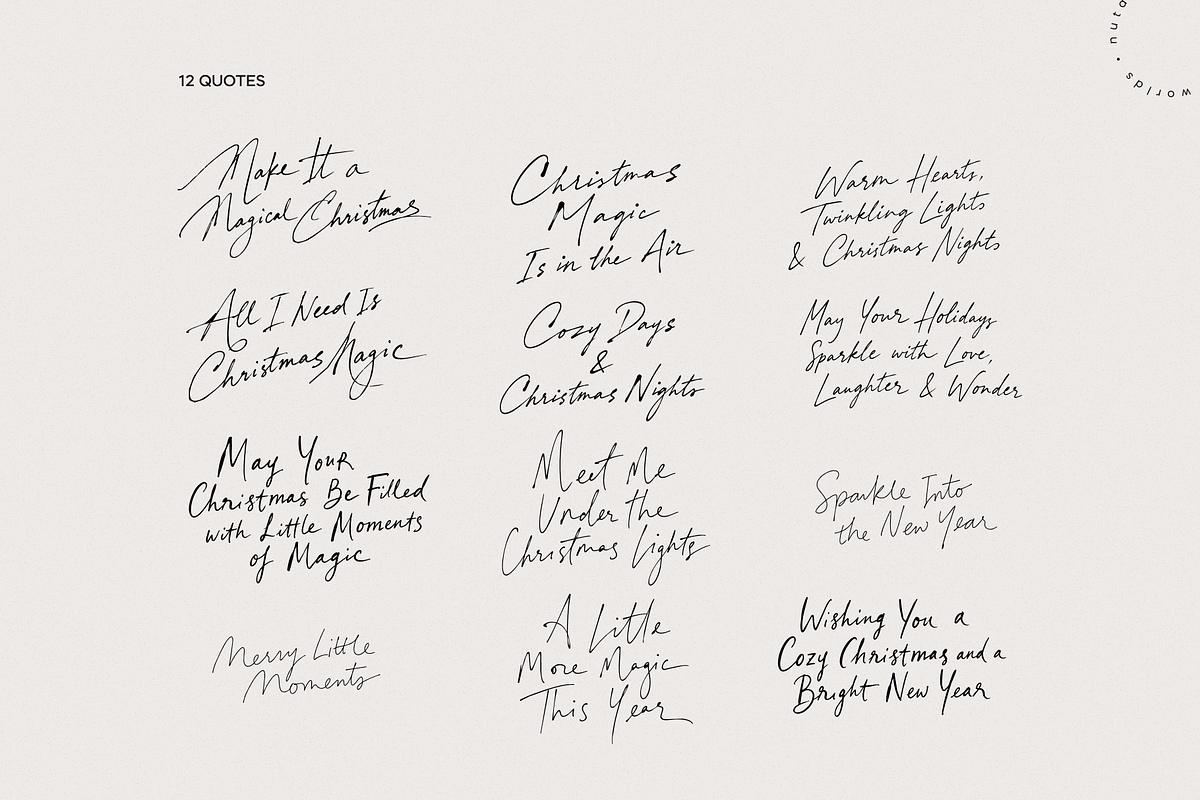 nuta
• worlds
12 QUOTES
Make It a
Magical Christmas
All I Need Is
Christmas Magic
May Your
Christmas Be Filled
with Little Moments
of Magic
Merry Little
Moments
Christmas
Magic
Is in the Air
Cozy Days
&
Christmas Nights
Meet Me
Under the
Christmas Lights
A Little
More Magic
This Year
Warm Hearts,
Twinkling Lights
& Christmas Nights
May Your Holidays
Sparkle with Love,
Laughter & Wonder
Sparkle Into
the New Year
Wishing You a
Cozy Christmas and a
Bright New Year